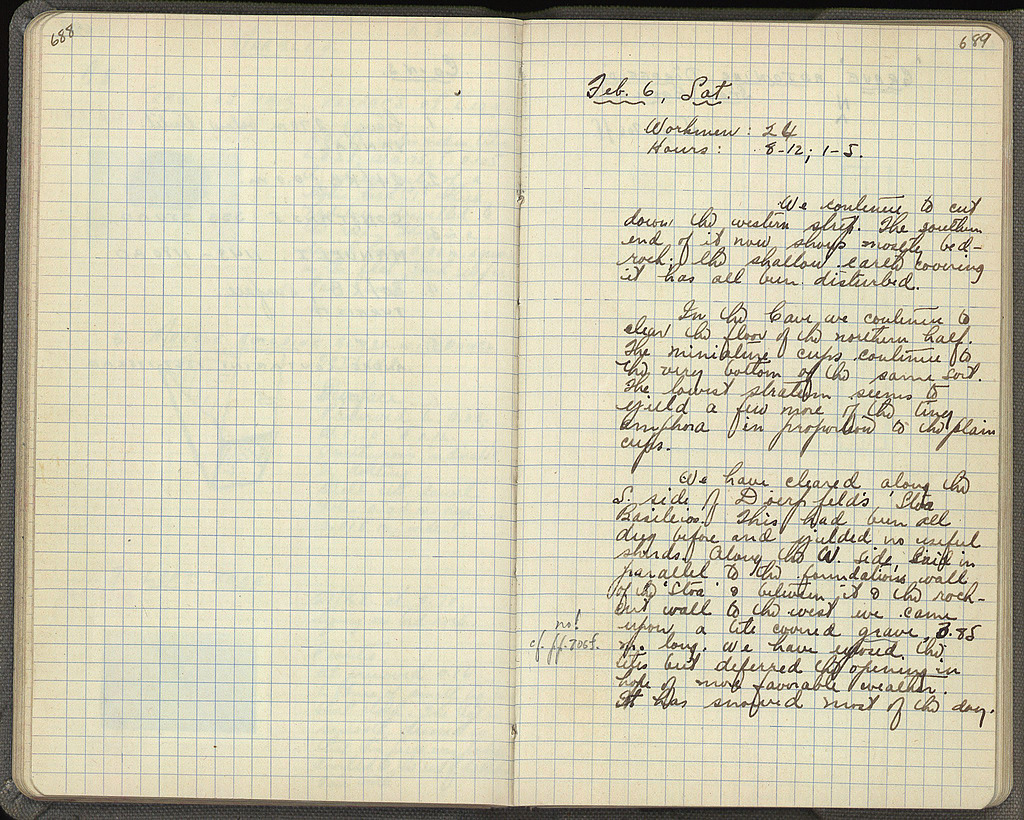 688
689
Feb. 6, Sat.
Workmen: 24
Hours: 8-12; 1-5.
We continue to cut
down the western strip. The southern
end of it now shows mostly bed-
rock; the shallow earth covering
it has all been disturbed.
In the Cave we continue to
clear the floor of the northern half.
The miniature cups continue to
the very bottom of the same sort.
The lowest stratum seems to
yield a few more of the tiny
amphora in proportion to the plain
cups.
We have cleared along the
S. side of Doerpfeld's 'Stoa
Basileios.' This had been all
dug before and yielded no useful
sherds. Along the W. side, laid in
parallel to the foundations wall
of the 'Stoa' & between it & the rock-
cut wall to the west we came
upon a tile covered grave, 3.85
m. long. We have exposed the
tiles but deferred the opening in
hope of more favorable weather.
It has snowed most of the day.
no!
cf. pp. 706f.